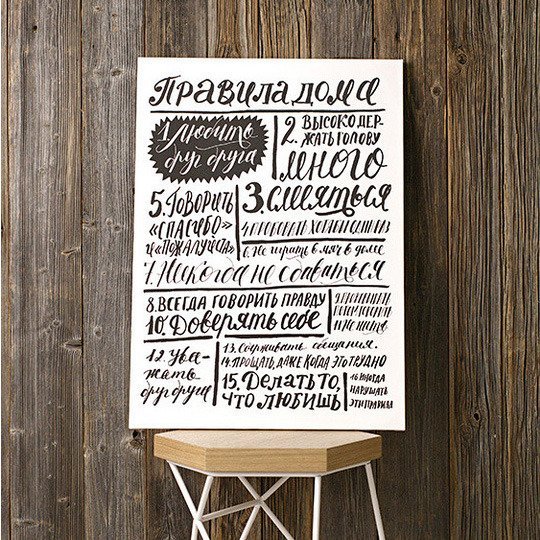 Правила дома
1. любить
друг друга
2. высоко дер-
жать голову
много
3. смеяться
4. пробовать хотя бы один раз
5. Говорить
«спасибо»
и «пожалуйста»
6. Не играть в мяч в доме
7. Никогда не сдаваться
8. Всегда говорить правду
9.
10. Доверять себе
12. Ува-
жать
друг друга
13. Сдерживать обещания.
14. Прощать, даже когда это трудно
15. Делать то,
что любишь
16. Иногда
нарушать
эти правила